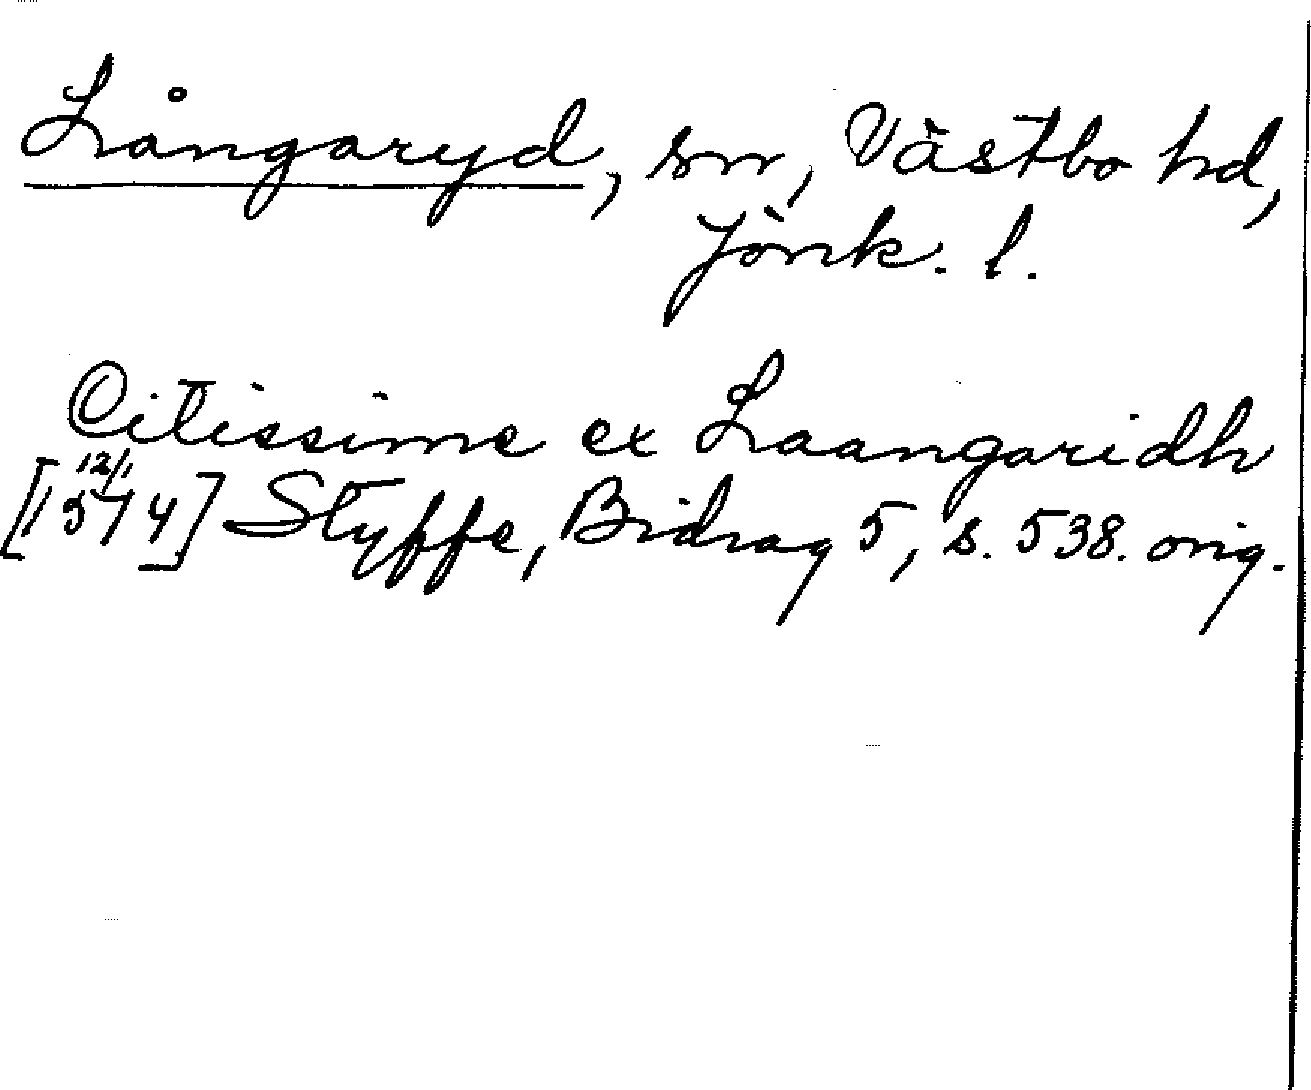 Långaryd, sn, Västbo hd,
Jönk. l.
Citissime ex Laangaridh
[12/1 1514] Styffe, Bidrag 5, s. 538. orig.